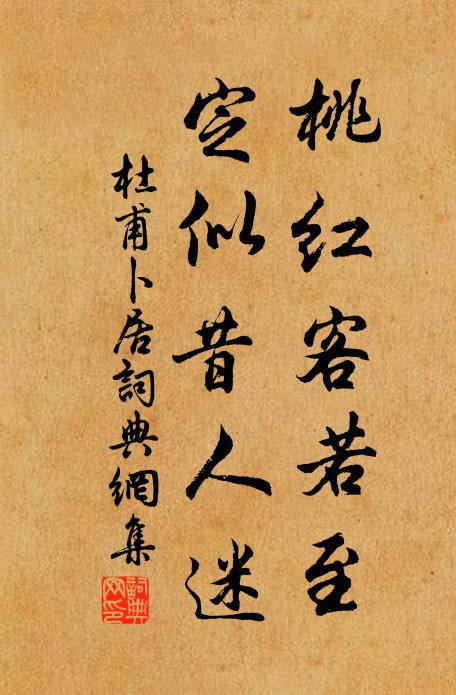 桃红客若至
定似昔人迷
杜甫卜居詞典網集
詞典网印